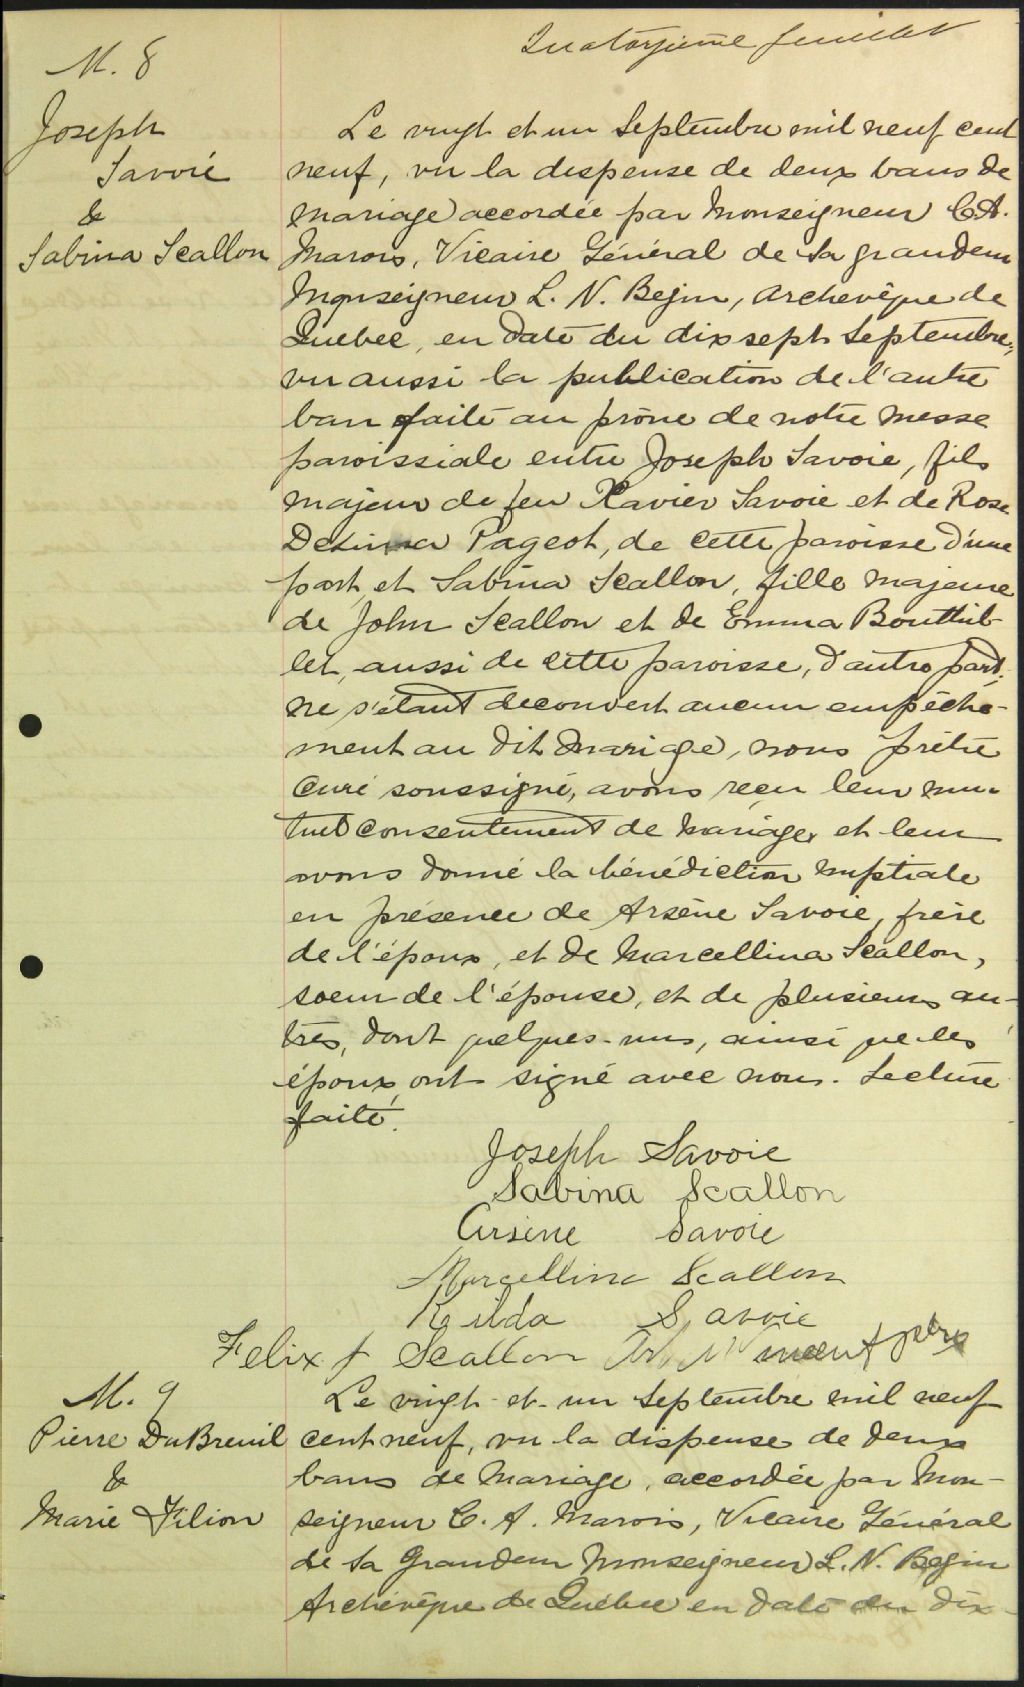 Quatorzième feuillet
M. 8
Joseph
Savoie
&
Sabina Scallon
Le vingt et un Septembre mil neuf cent
neuf, vu la dispense de deux bans de
mariage accordée par Monseigneur C.A.
Marois, Vicaire Général de Sa grandeur
Monseigneur L. N. Begin, Archevêque de
Québec, en date du dix sept Septembre,
vu aussi la publication de l'autre
ban faite au prône de notre messe
paroissiale entre Joseph Savoie, fils
majeur de feu Xavier Savoie et de Rose
Delima Pageot, de cette paroisse d'une
part, et Sabina Scallon, fille majeure
de John Scallon et de Emma Bouthil-
let, aussi de cette paroisse, d'autre part,
ne s'étant decouvert aucun empêche-
ment au dit mariage, nous prêtre
curé soussigné, avons reçu leur mu-
tuel consentement de mariage, et leur
avons donné la bénédiction nuptiale
en présence de Arsène Savoie, frère
de l'époux, et de Marcellina Scallon,
soeur de l'épouse, et de plusieurs au-
tres, dont quelques-uns, ainsi que les
époux, ont signé avec nous. Lecture
faite.
Joseph Savoie
Sabina Scallon
Arsène Savoie
Marcellina Scallon
Rilda Savoie
Felix J Scallon ptre
M. 9
Pierre DuBreuil
&
Marie Filion
Le vingt-et-un Septembre mil neuf
cent neuf, vu la dispense de deux
bans de mariage, accordée par Mon-
seigneur C. A. Marois, Vicaire Général
de Sa Grandeur Monseigneur L. N. Begin
Archevêque de Québec en date du dix-